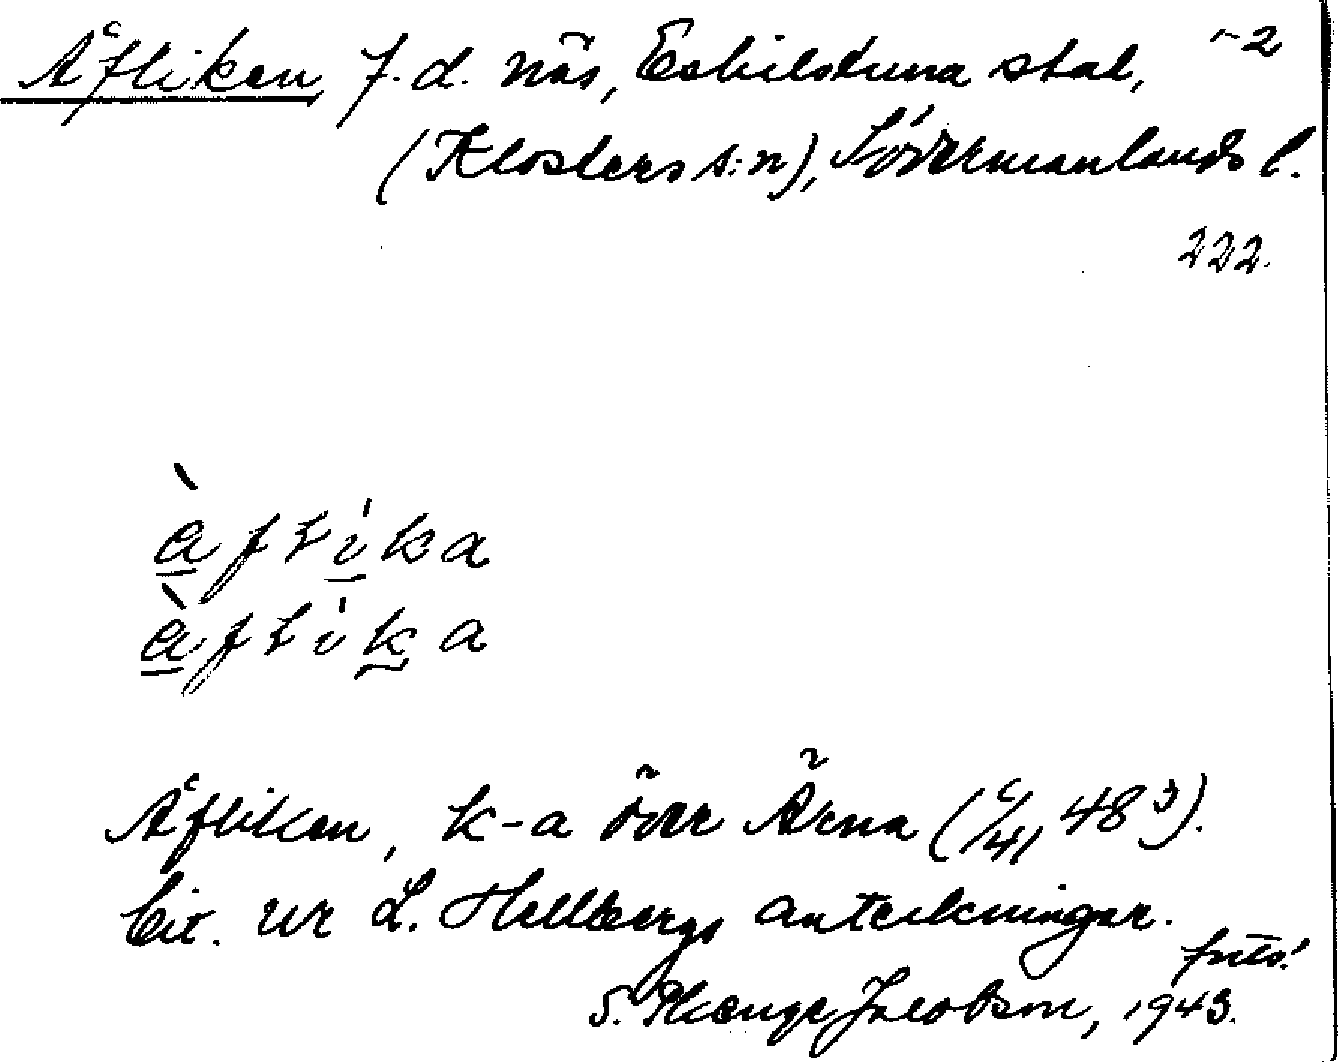 Åfliken f.d. näs, Eskilstuna stad, ~2
(Klosters s:n), Södermanlands l.
222.
àflika
àflika
Åfliken, k-a över Ärna (C/41 48³).
Cit. ur L. Hellbergs anteckningar.
forts!
S. Plænge Jacobson, 1943.